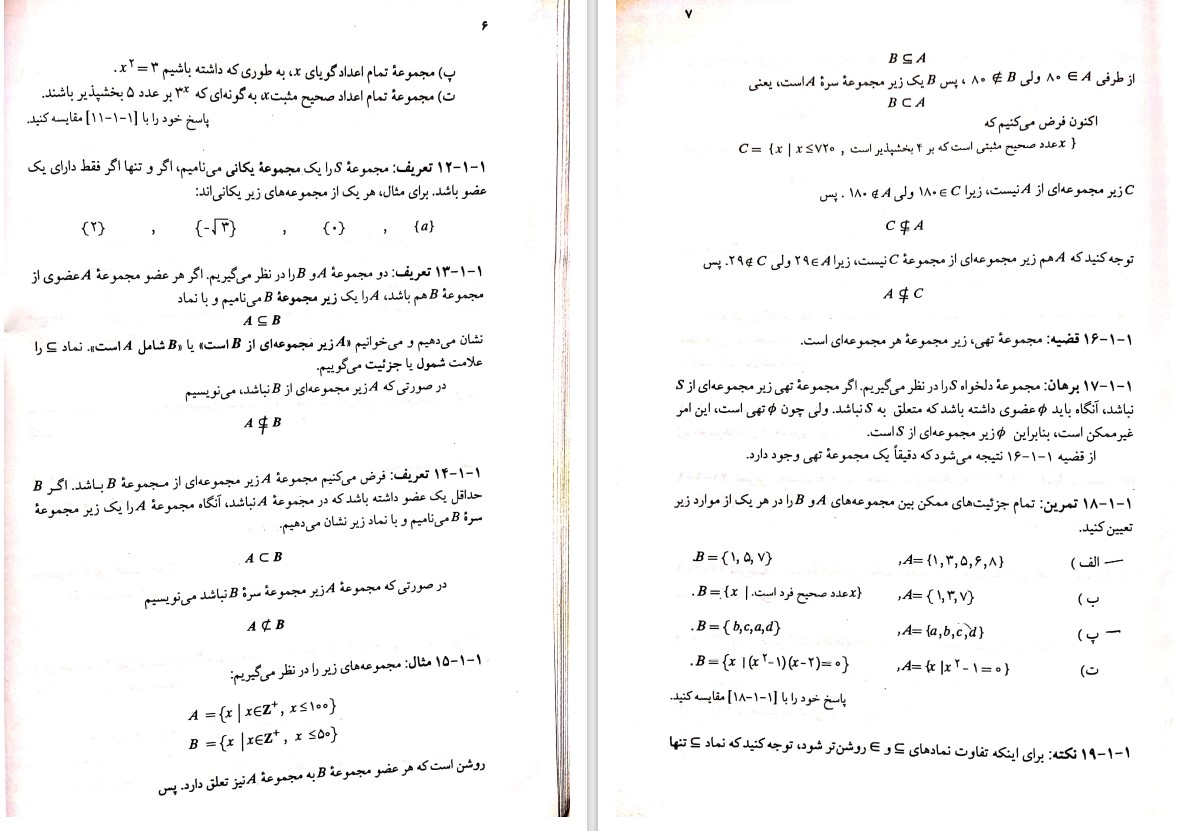 ۶
پ) مجموعهٔ تمام اعداد گویای x، به طوری که داشته باشیم x² = ۳.
ت) مجموعهٔ تمام اعداد صحیح مثبت x به گونه‌ای که ۳ˣ بر عدد ۵ بخشپذیر باشند.
پاسخ خود را با [۱-۱-۱۱] مقایسه کنید.
۱-۱-۱۲ تعریف: مجموعهٔ S را یک مجموعهٔ یکانی می‌نامیم، اگر و تنها اگر فقط دارای یک
عضو باشد. برای مثال، هر یک از مجموعه‌های زیر یکانی‌اند:
{a} , {۰} , {-√۳} , {۲}
۱-۱-۱۳ تعریف: دو مجموعهٔ A و B را در نظر می‌گیریم. اگر هر عضو مجموعهٔ A عضوی از
مجموعهٔ B هم باشد، A را یک زیر مجموعهٔ B می‌نامیم و با نماد
A ⊆ B
نشان می‌دهیم و می‌خوانیم «A زیر مجموعه‌ای از B است» یا «B شامل A است». نماد ⊆ را
علامت شمول یا جزئیت می‌گوییم.
در صورتی که A زیر مجموعه‌ای از B نباشد، می‌نویسیم
A ⊈ B
۱-۱-۱۴ تعریف: فرض می‌کنیم مجموعهٔ A زیر مجموعه‌ای از مجموعهٔ B باشد. اگر B
حداقل یک عضو داشته باشد که در مجموعهٔ A نباشد، آنگاه مجموعهٔ A را یک زیر مجموعهٔ
سرهٔ B می‌نامیم و با نماد زیر نشان می‌دهیم.
A ⊂ B
در صورتی که مجموعهٔ A زیر مجموعهٔ سرهٔ B نباشد می‌نویسیم
A ⊄ B
۱-۱-۱۵ مثال: مجموعه‌های زیر را در نظر می‌گیریم:
A = {x | x∈Z⁺, x≤۱۰۰}
B = {x | x∈Z⁺, x ≤۵۰}
روشن است که هر عضو مجموعهٔ B به مجموعهٔ A نیز تعلق دارد. پس
۷
B ⊆ A
از طرفی ۸۰ ∈ A ولی ۸۰ ∉ B، پس B یک زیر مجموعهٔ سرهٔ A است، یعنی
B ⊂ A
اکنون فرض می‌کنیم که
C = {x | x≤۷۲۰ , عدد صحیح مثبتی است که بر ۴ بخشپذیر است x}
C زیر مجموعه‌ای از A نیست، زیرا ۱۸۰∈C ولی ۱۸۰∉A. پس
C ⊈ A
توجه کنید که A هم زیر مجموعه‌ای از مجموعهٔ C نیست، زیرا ۲۹∈A ولی ۲۹∉C. پس
A ⊈ C
۱-۱-۱۶ قضیه: مجموعهٔ تهی، زیر مجموعهٔ هر مجموعه‌ای است.
۱-۱-۱۷ برهان: مجموعهٔ دلخواه S را در نظر می‌گیریم. اگر مجموعهٔ تهی زیر مجموعه‌ای از S
نباشد، آنگاه باید ϕ عضوی داشته باشد که متعلق به S نباشد. ولی چون ϕ تهی است، این امر
غیرممکن است، بنابراین ϕ زیر مجموعه‌ای از S است.
از قضیه ۱-۱-۱۶ نتیجه می‌شود که دقیقاً یک مجموعهٔ تهی وجود دارد.
۱-۱-۱۸ تمرین: تمام جزئیت‌های ممکن بین مجموعه‌های A و B را در هر یک از موارد زیر
تعیین کنید.
الف) A={۱,۳,۵,۶,۸}, B={۱,۵,۷}.
ب) A={۱,۳,۷}, B={x | عدد صحیح فرد است.x}.
پ) A={a,b,c,d}, B={b,c,a,d}.
ت) A={x|x²-۱=۰}, B={x|(x²-۱)(x-۲)=۰}.
پاسخ خود را با [۱-۱-۱۸] مقایسه کنید.
۱-۱-۱۹ نکته: برای اینکه تفاوت نمادهای ⊆ و ∈ روشن‌تر شود، توجه کنید که نماد ⊆ تنها